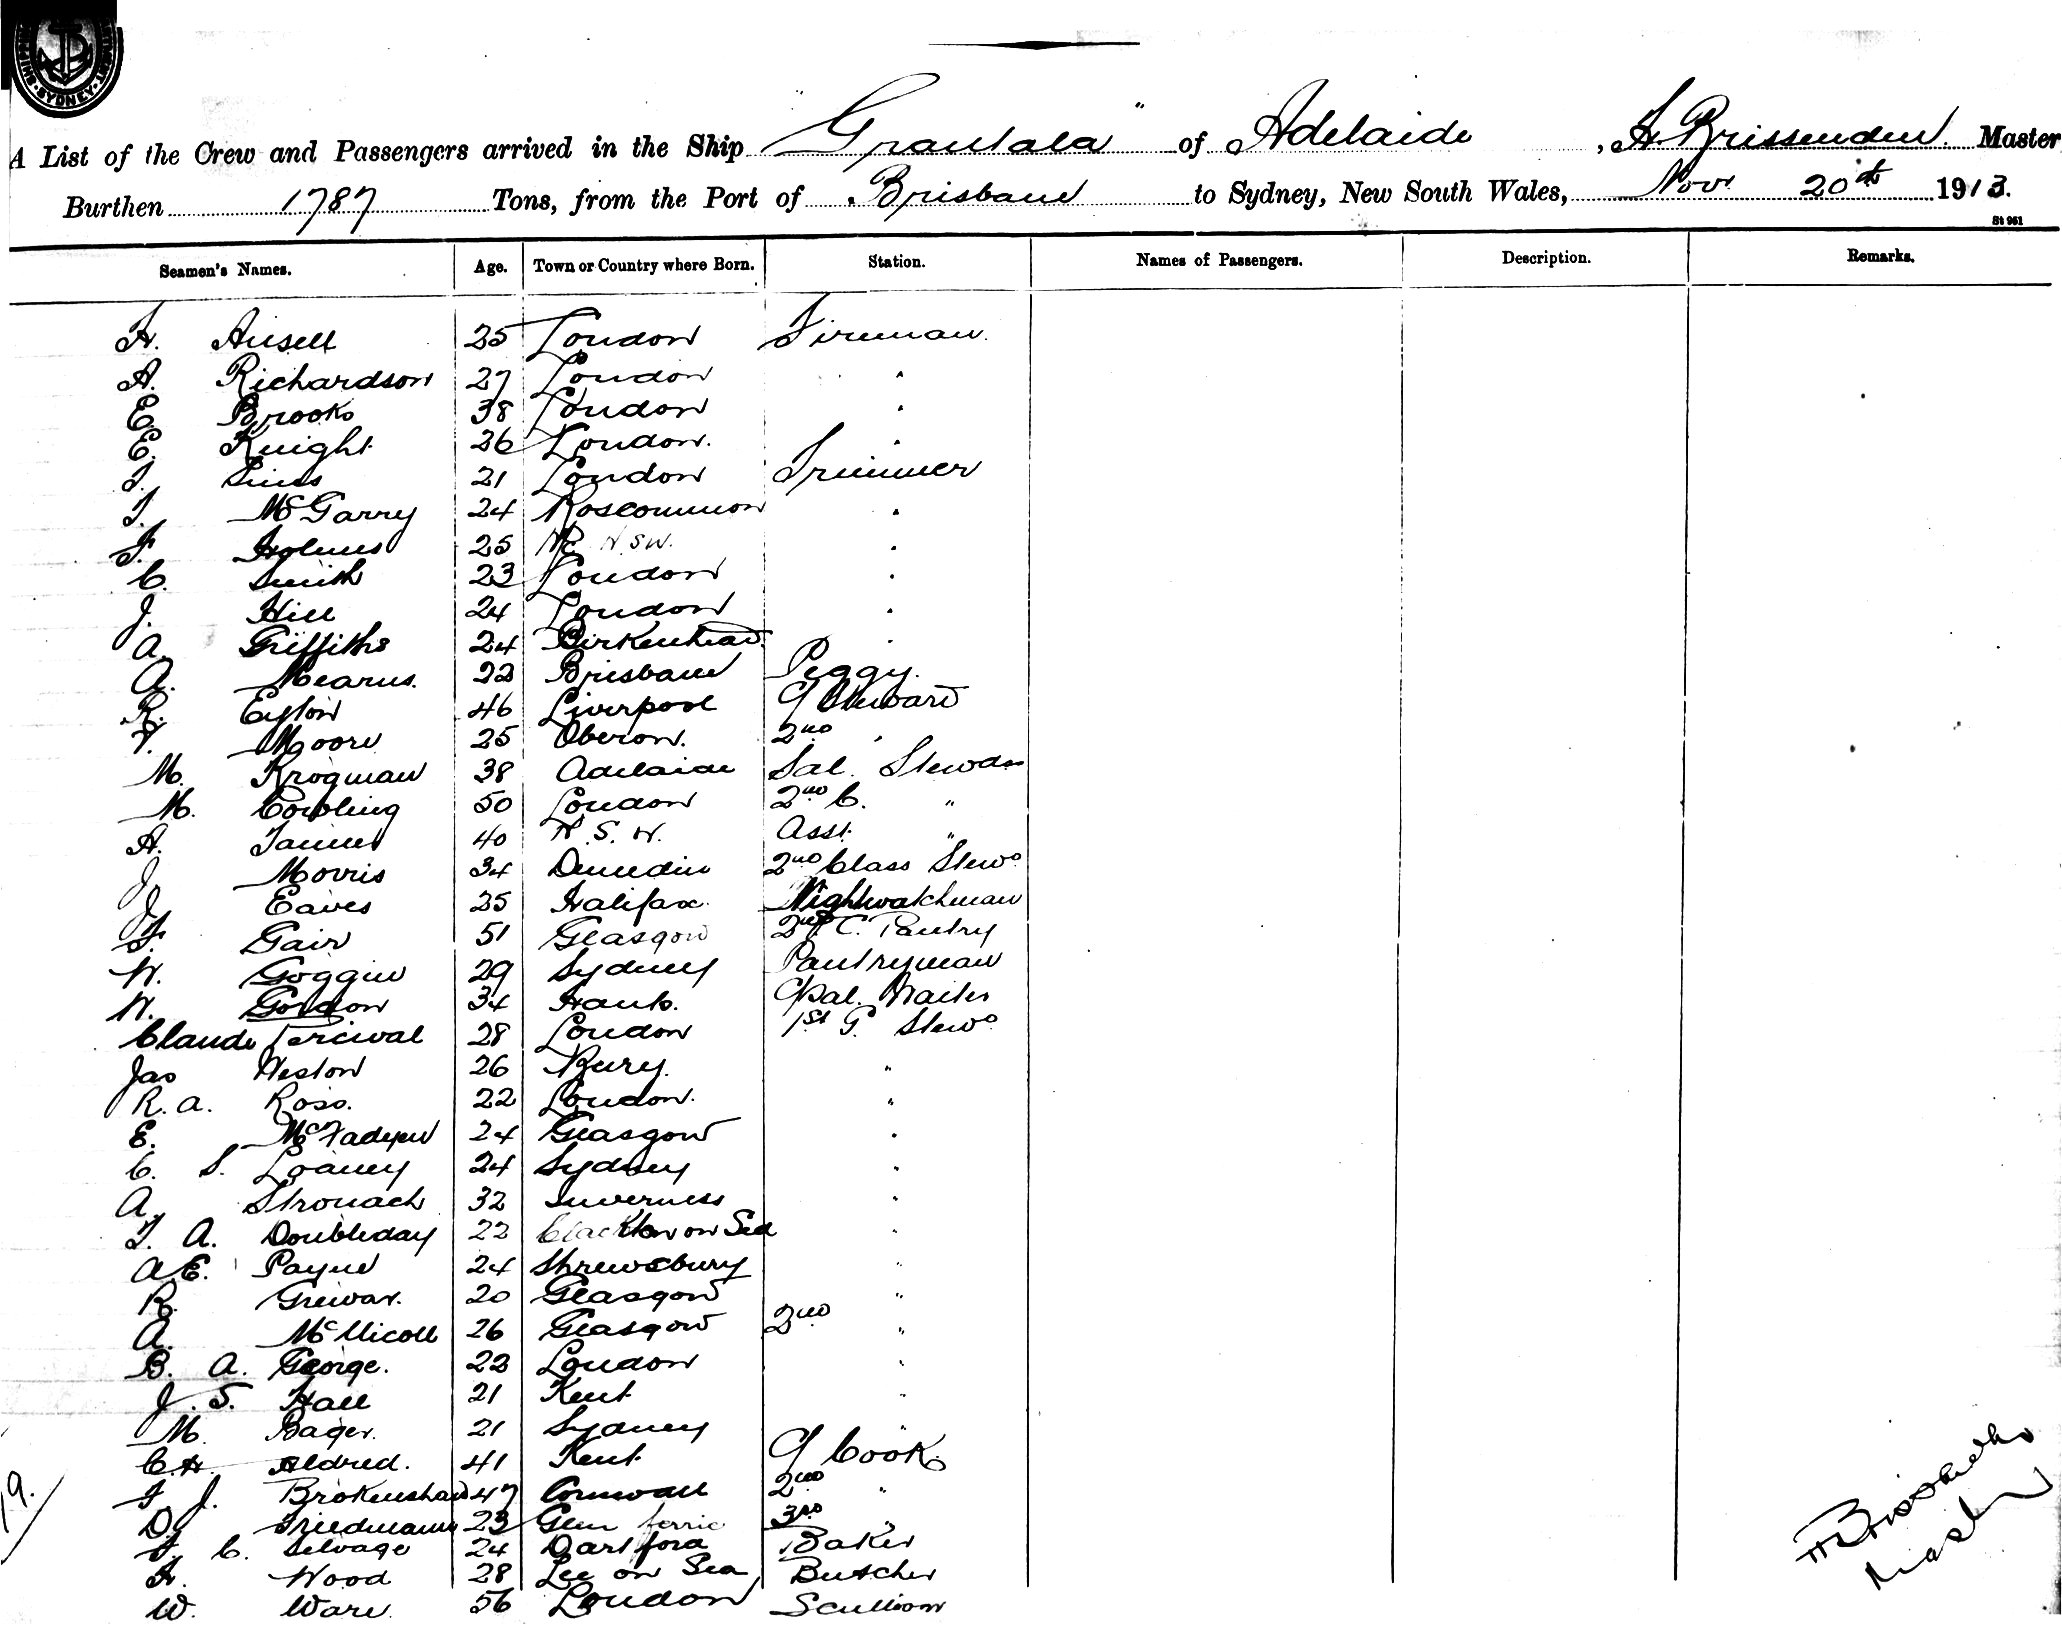 SHIPPING DEPARTMENT · SYDNEY ·
A List of the Crew and Passengers arrived in the Ship "Grantala" of Adelaide, H. Brissenden. Master
Burthen 1787 Tons, from the Port of Brisbane to Sydney, New South Wales, Nov. 20th 1913.
St 961
Seamen's Names. Age. Town or Country where Born. Station. Names of Passengers. Description. Remarks.
H. Ansell 25 London Fireman.
A. Richardson 27 London "
E. Brooks 38 London "
E. Knight 26 London. "
T. Sims 21 London Trimmer
T. McGarry 24 Roscommon "
F. Holmes 25 N.S.W. "
C. Smith 23 London "
J. Hill 24 London "
A. Griffiths 24 Birkenhead. "
A. Mearns. 22 Brisbane Peggy.
R. Eylon 46 Liverpool C/ Steward
Moore 25 Oberon. 2nd "
M. Krogman 38 Adelaide Sal. Stewdss
M. Cowling 50 London 2nd C. "
A. Tanner 40 N.S.W. Asst. "
J. Morris 34 Dunedin 2nd Class Stewd
J. Eaves 25 Halifax. Nightwatchman
F. Gair 51 Glasgow 2nd C. Pantry
W. Goggin 29 Sydney Pantryman
W. Gordon 34 Hants. C/Sal. Waiter
Claude Percival 28 London 1st G. Stewd
Jas Weston 26 Bury. "
R. A. Ross. 22 London. "
E. McFadyen 24 Glasgow "
C. S. Loaney 24 Sydney "
A. Stronach 32 Inverness "
T. A. Doubleday 22 Clackton on Sea "
A.E. Payne 24 Shrewsbury "
R. Grewar. 20 Glasgow "
A. McNicoll 26 Glasgow 2nd "
B. A. George. 22 London "
J. S. Hall 21 Kent "
M. Bager. 21 Sydney "
C.H. Aldred. 41 Kent C/ Cook
F J. Brokenshaw 47 Cornwall 2nd "
D. Friedmann 23 Glen 3rd "
F. C. Selvage 24 Dartford Baker
H. Wood 28 Lee on Sea Butcher
W. Ware 56 London Scullion
19.
H Brissenden
Master